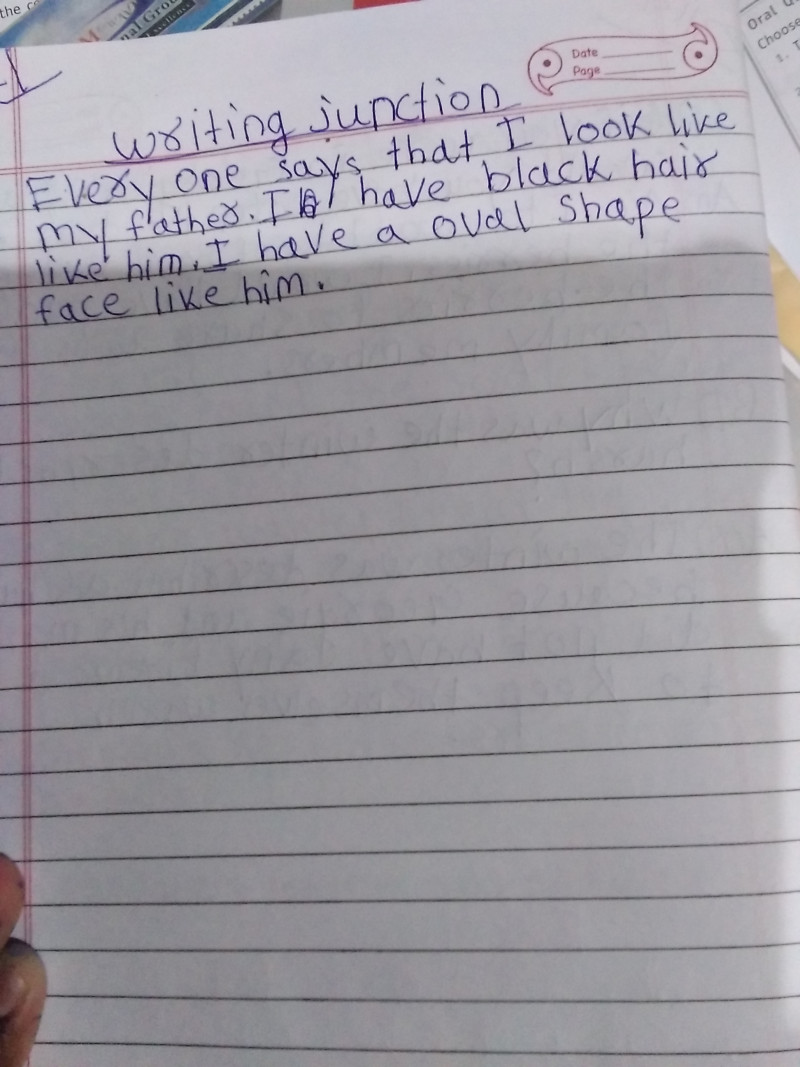 the
nal Gro
Excellence
Oral
Choose
1.
Date
Page
Writing junction
Every one says that I look like
my father. I have black hair
like him. I have a oval shape
face like him.